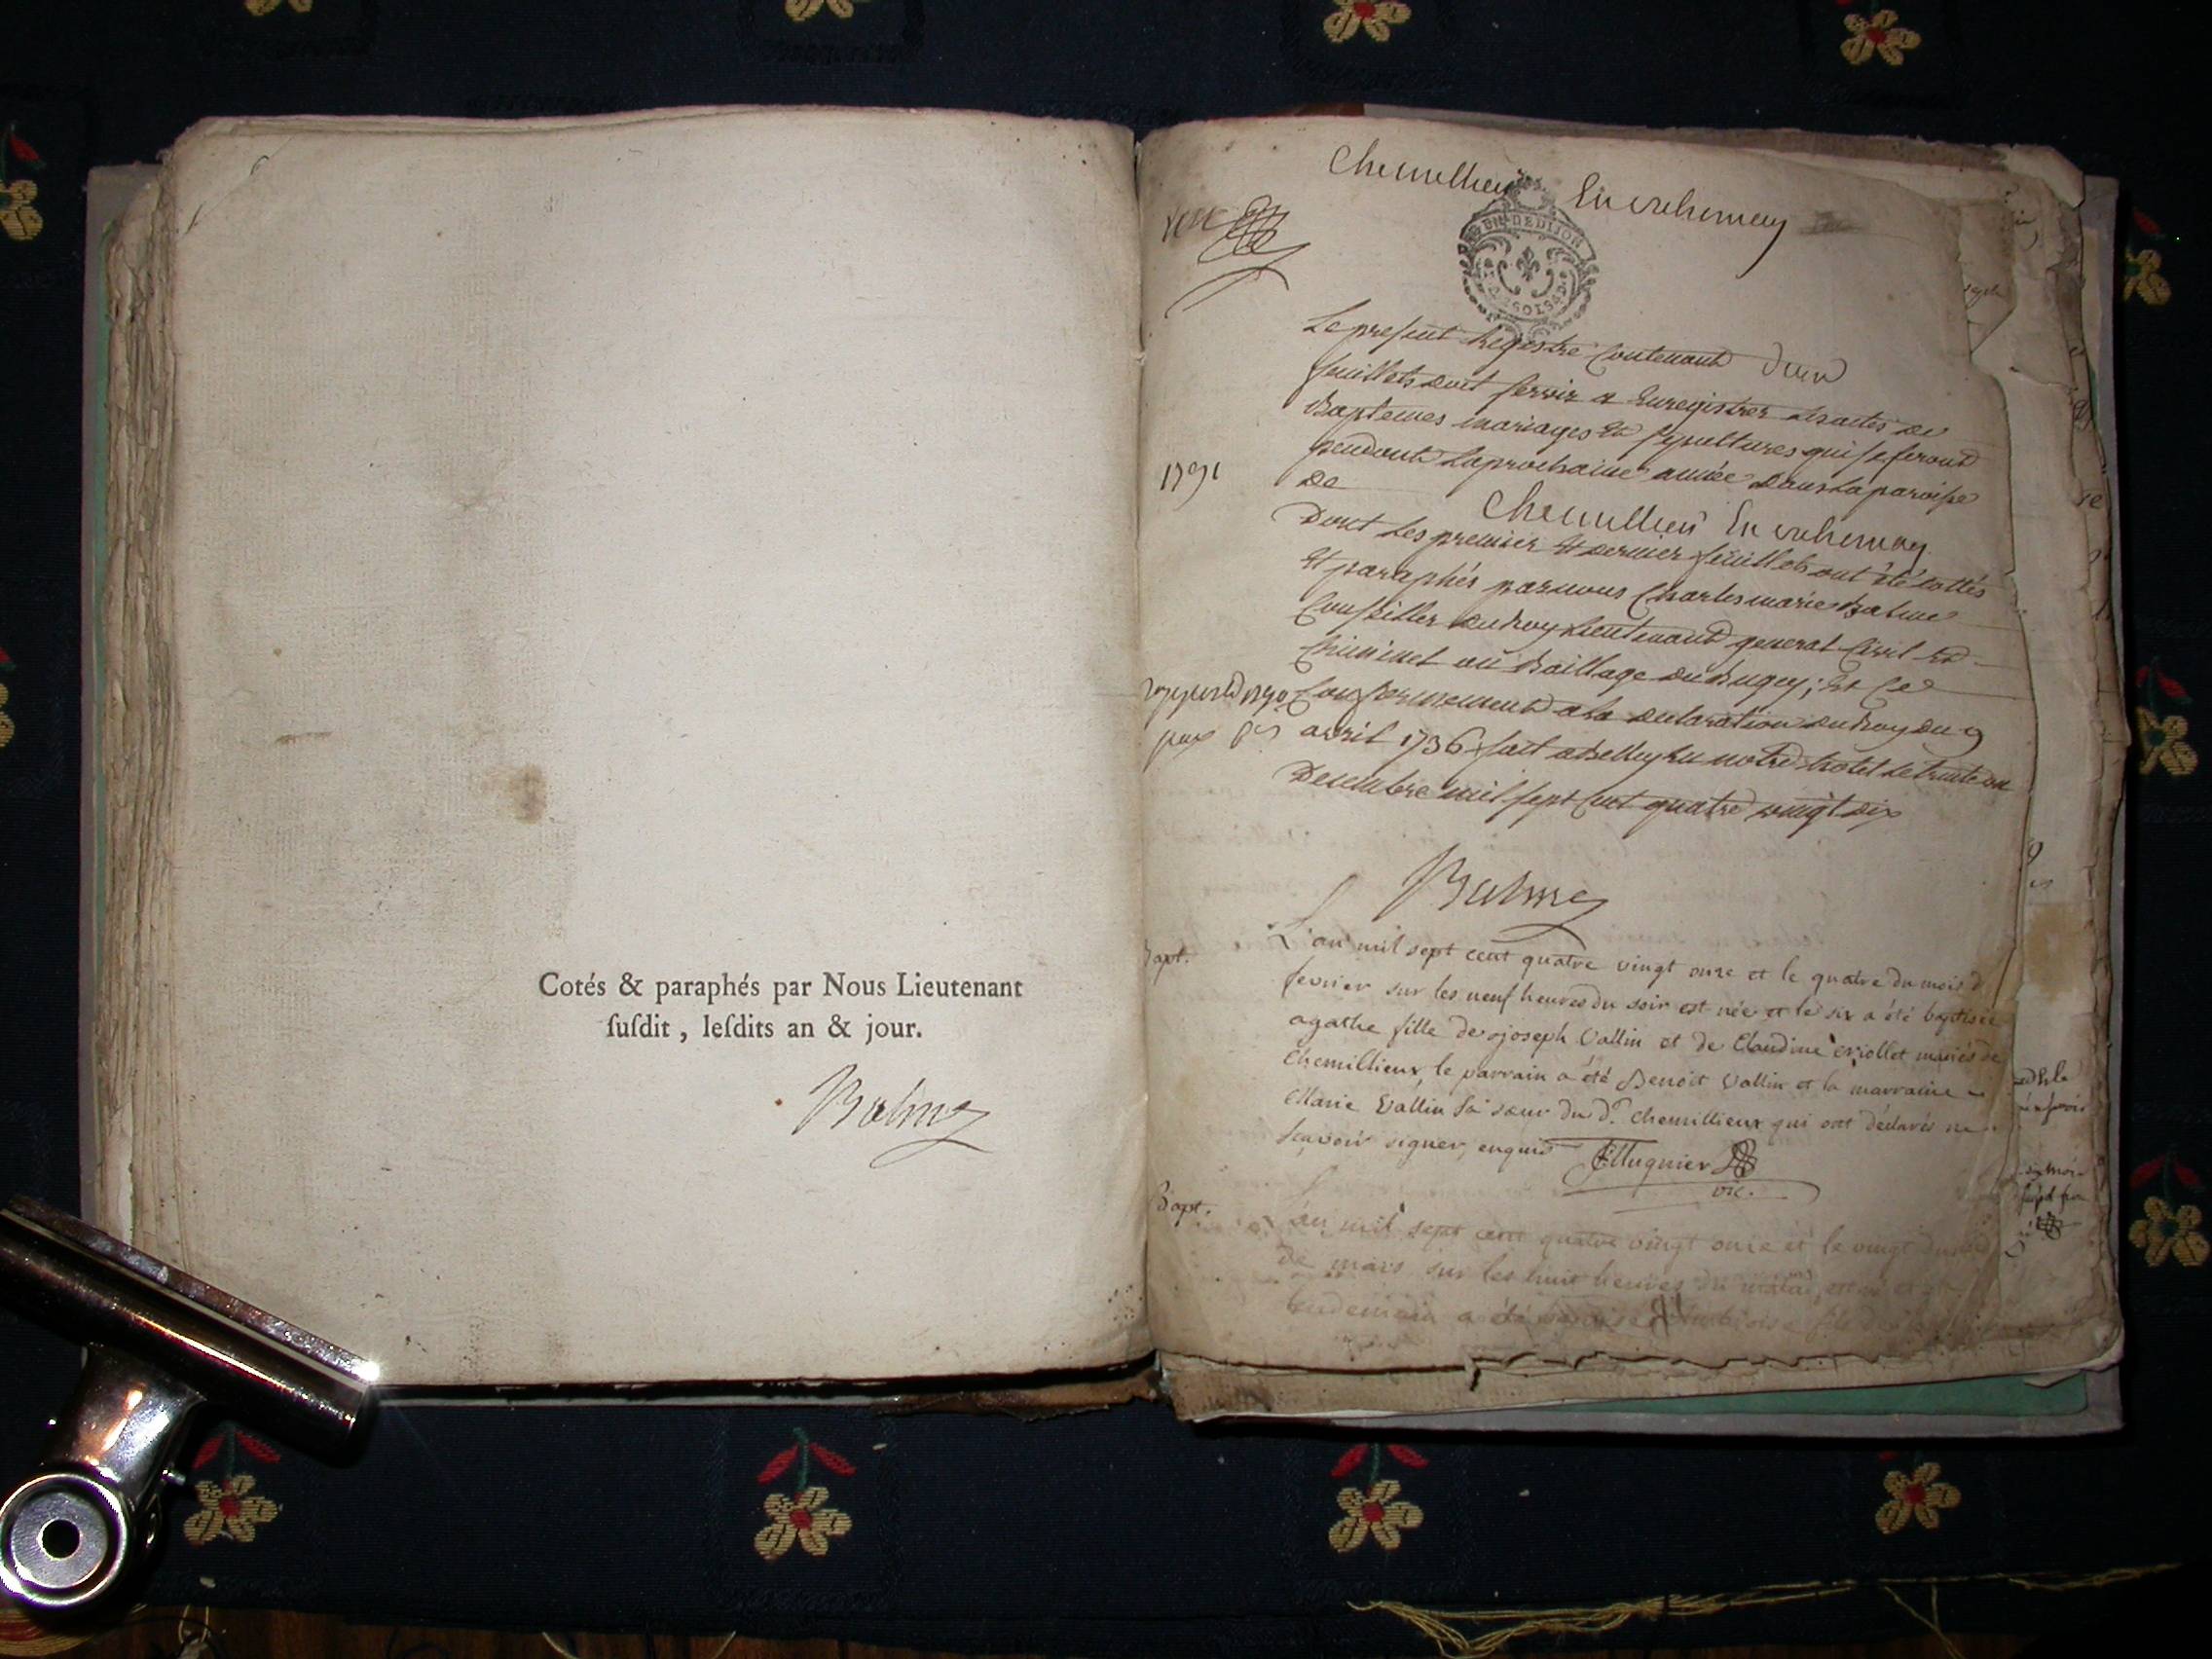 Cotés & paraphés par Nous Lieutenant
ſuſdit, leſdits an & jour.
Balme
Chemillieu En
Le present Registre Contenant deux
feuillets doit servir a Enregistrer les actes de
Baptemes mariages et sepultures qui se feront
pendant la prochaine année dans la paroisse
1791
de
Chemillieu En
Dont les premier et dernier feuillets ont été cottés
Et paraphés par nous Charles marie Balme
Conseiller du Roy Lieutenant general Civil et
Criminel au Baillage du Bugey; Et Ce
Conformement a la declaration du Roy du 9
avril 1736 fait a Belley En notre hotel le trente un
Decembre mil sept Cent quatre vingt dix
Balme
Bapt.
L'an mil sept cent quatre vingt onze et le quatre du mois d
fevrier sur les neuf heures du soir est née et le six a été baptisée
agathe fille de joseph Vallin et de Claudine mariés de
Chemillieux, le parrain a été Benoit Vallin et la marraine
Marie Vallin sa sœur du d. Chemillieux qui ont déclarés ne
sçavoir signer, enquis Mugnier
vic.
Bapt.
L'an mil sept cent quatre vingt onze et le vingt du
de mars sur les huit heures du matin, est né et
lendemain a été baptisé fils de